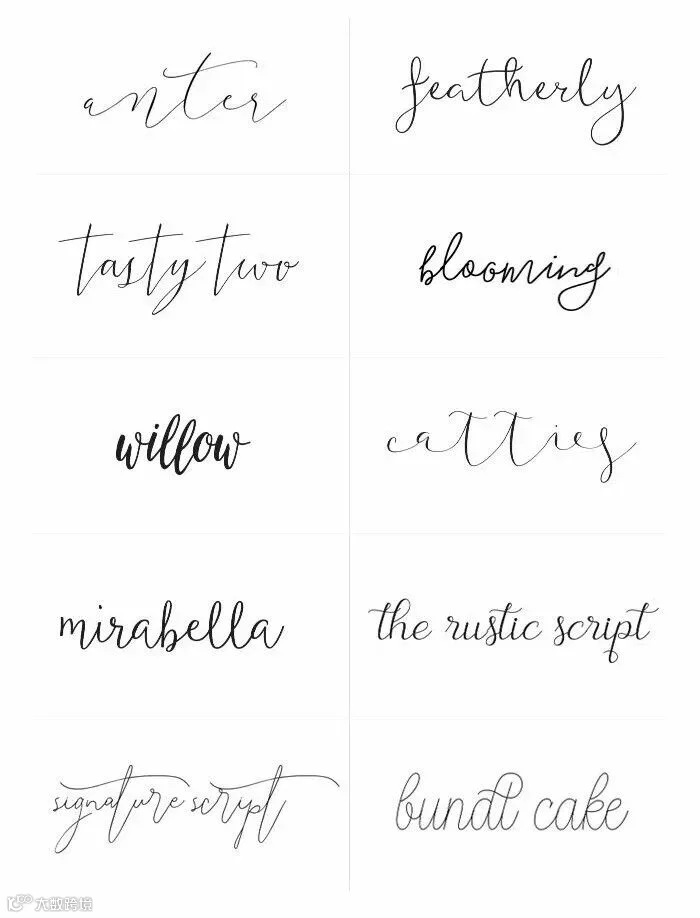 anter
featherly
tasty two
blooming
willow
catties
mirabella
the rustic script
signature script
bundt cake
大数跨境